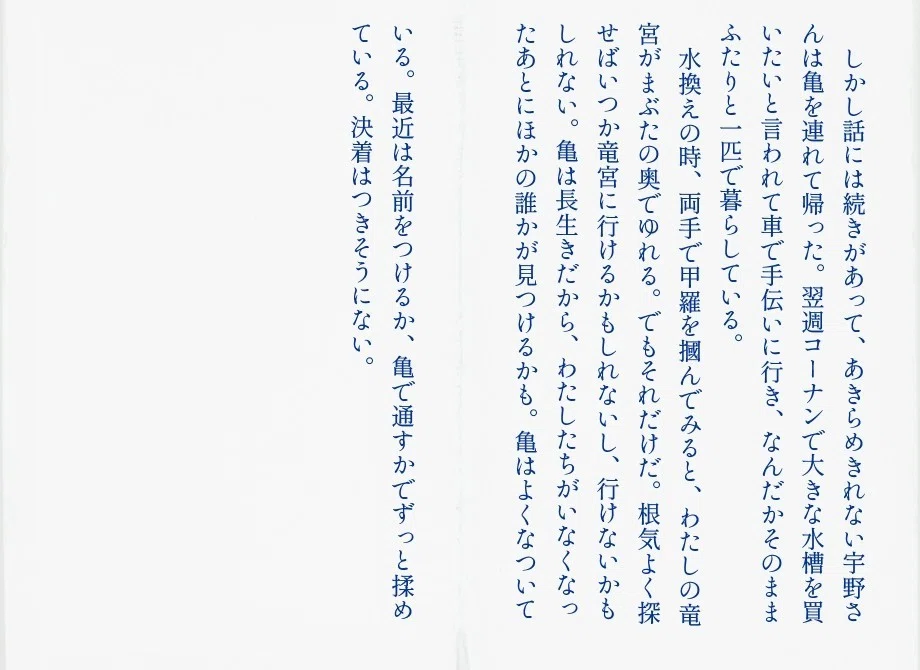 しかし話には続きがあって、あきらめきれない宇野さ
んは亀を連れて帰った。翌週コーナンで大きな水槽を買
いたいと言われて車で手伝いに行き、なんだかそのまま
ふたりと一匹で暮らしている。
水換えの時、両手で甲羅を摑んでみると、わたしの竜
宮がまぶたの奥でゆれる。でもそれだけだ。根気よく探
せばいつか竜宮に行けるかもしれないし、行けないかも
しれない。亀は長生きだから、わたしたちがいなくなっ
たあとにほかの誰かが見つけるかも。亀はよくなついて
いる。最近は名前をつけるか、亀で通すかでずっと揉め
ている。決着はつきそうにない。